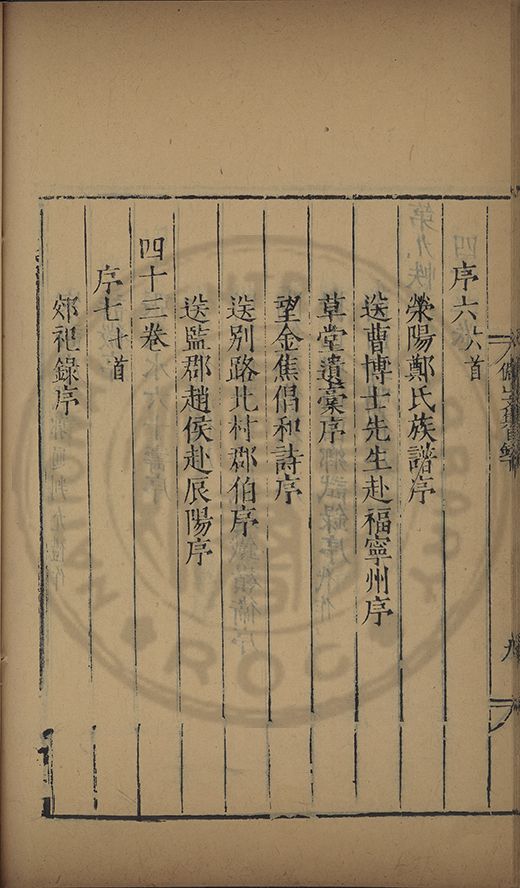 九
序六六首
滎陽鄭氏族譜序
送曹博士先生赴福寧州序
草堂遺稾序
望金焦倡和詩序
送別路北村郡伯序
送監郡趙侯赴辰陽序
四十三卷
序七十首
郊祀錄序